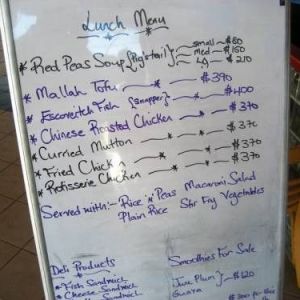 Lunch Menu
small ~ $80
* Red Peas Soup {Pigstail} med ~ $150
Lg ~ $210
* Mallah Tofu $370
* Escoveitch Fish (snapper) $400
* Chinese Roasted Chicken $370
* Curried Mutton $370
* Fried Chicken $370
* Rotisserie Chicken $370
Served with:- Rice & Peas Macaroni Salad
Plain Rice Stir Fry Vegetables
Deli Products
* Fish Sandwich
* Cheese Sandwich
Sandwich
Smoothies For Sale
June Plum } $120
Guava